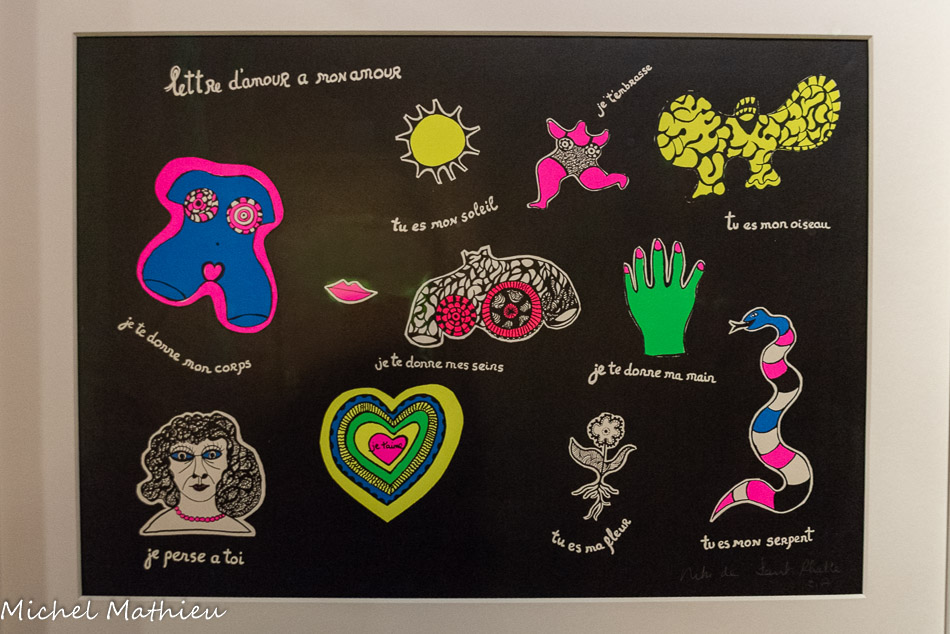 lettre d'amour a mon amour
je t'embrasse
tu es mon soleil
tu es mon oiseau
je te donne mon corps
je te donne mes seins
je te donne ma main
je t'aime
je pense a toi
tu es ma fleur
tu es mon serpent
Niki de Saint Phalle
Michel Mathieu